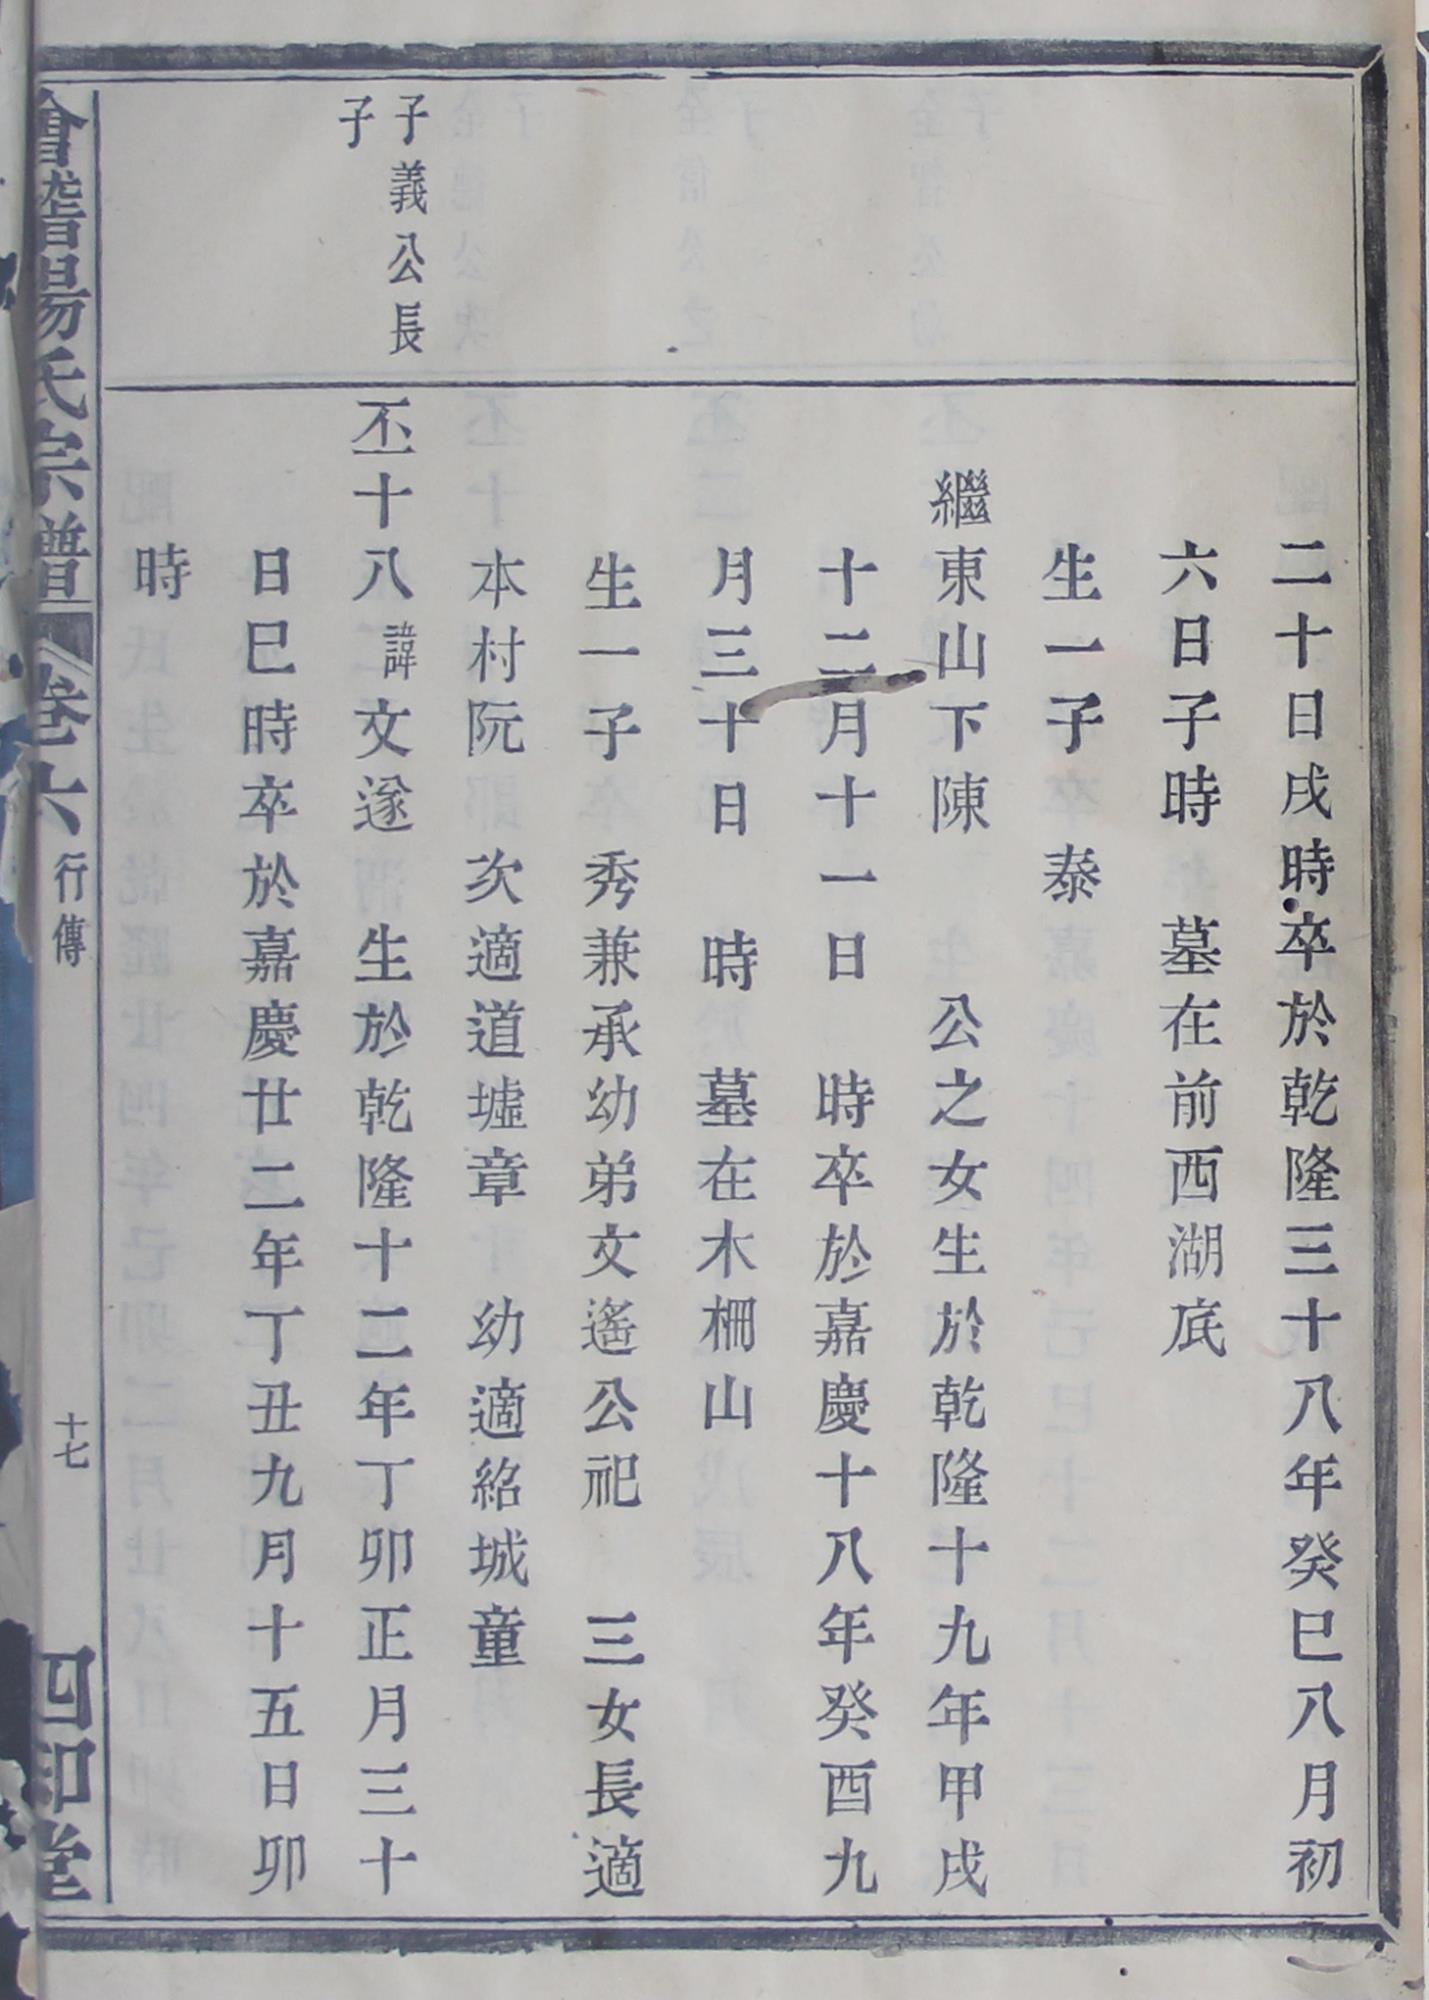 二十日戌時卒於乾隆三十八年癸巳八月初
六日子時　墓在前西湖底
生一子泰
繼東山下陳　　公之女生於乾隆十九年甲戌
十二月十一日　時卒於嘉慶十八年癸酉九
月三十日　時　墓在木柵山
生一子　秀兼承幼弟文遙公祀　三女長適
本村阮　次適道墟章　幼適紹城童
子義公長
子
丕十八諱文遂　生於乾隆十二年丁卯正月三十
日巳時卒於嘉慶廿二年丁丑九月十五日卯
時
會稽陽氏宗譜　卷六　行傳　十七　四印堂